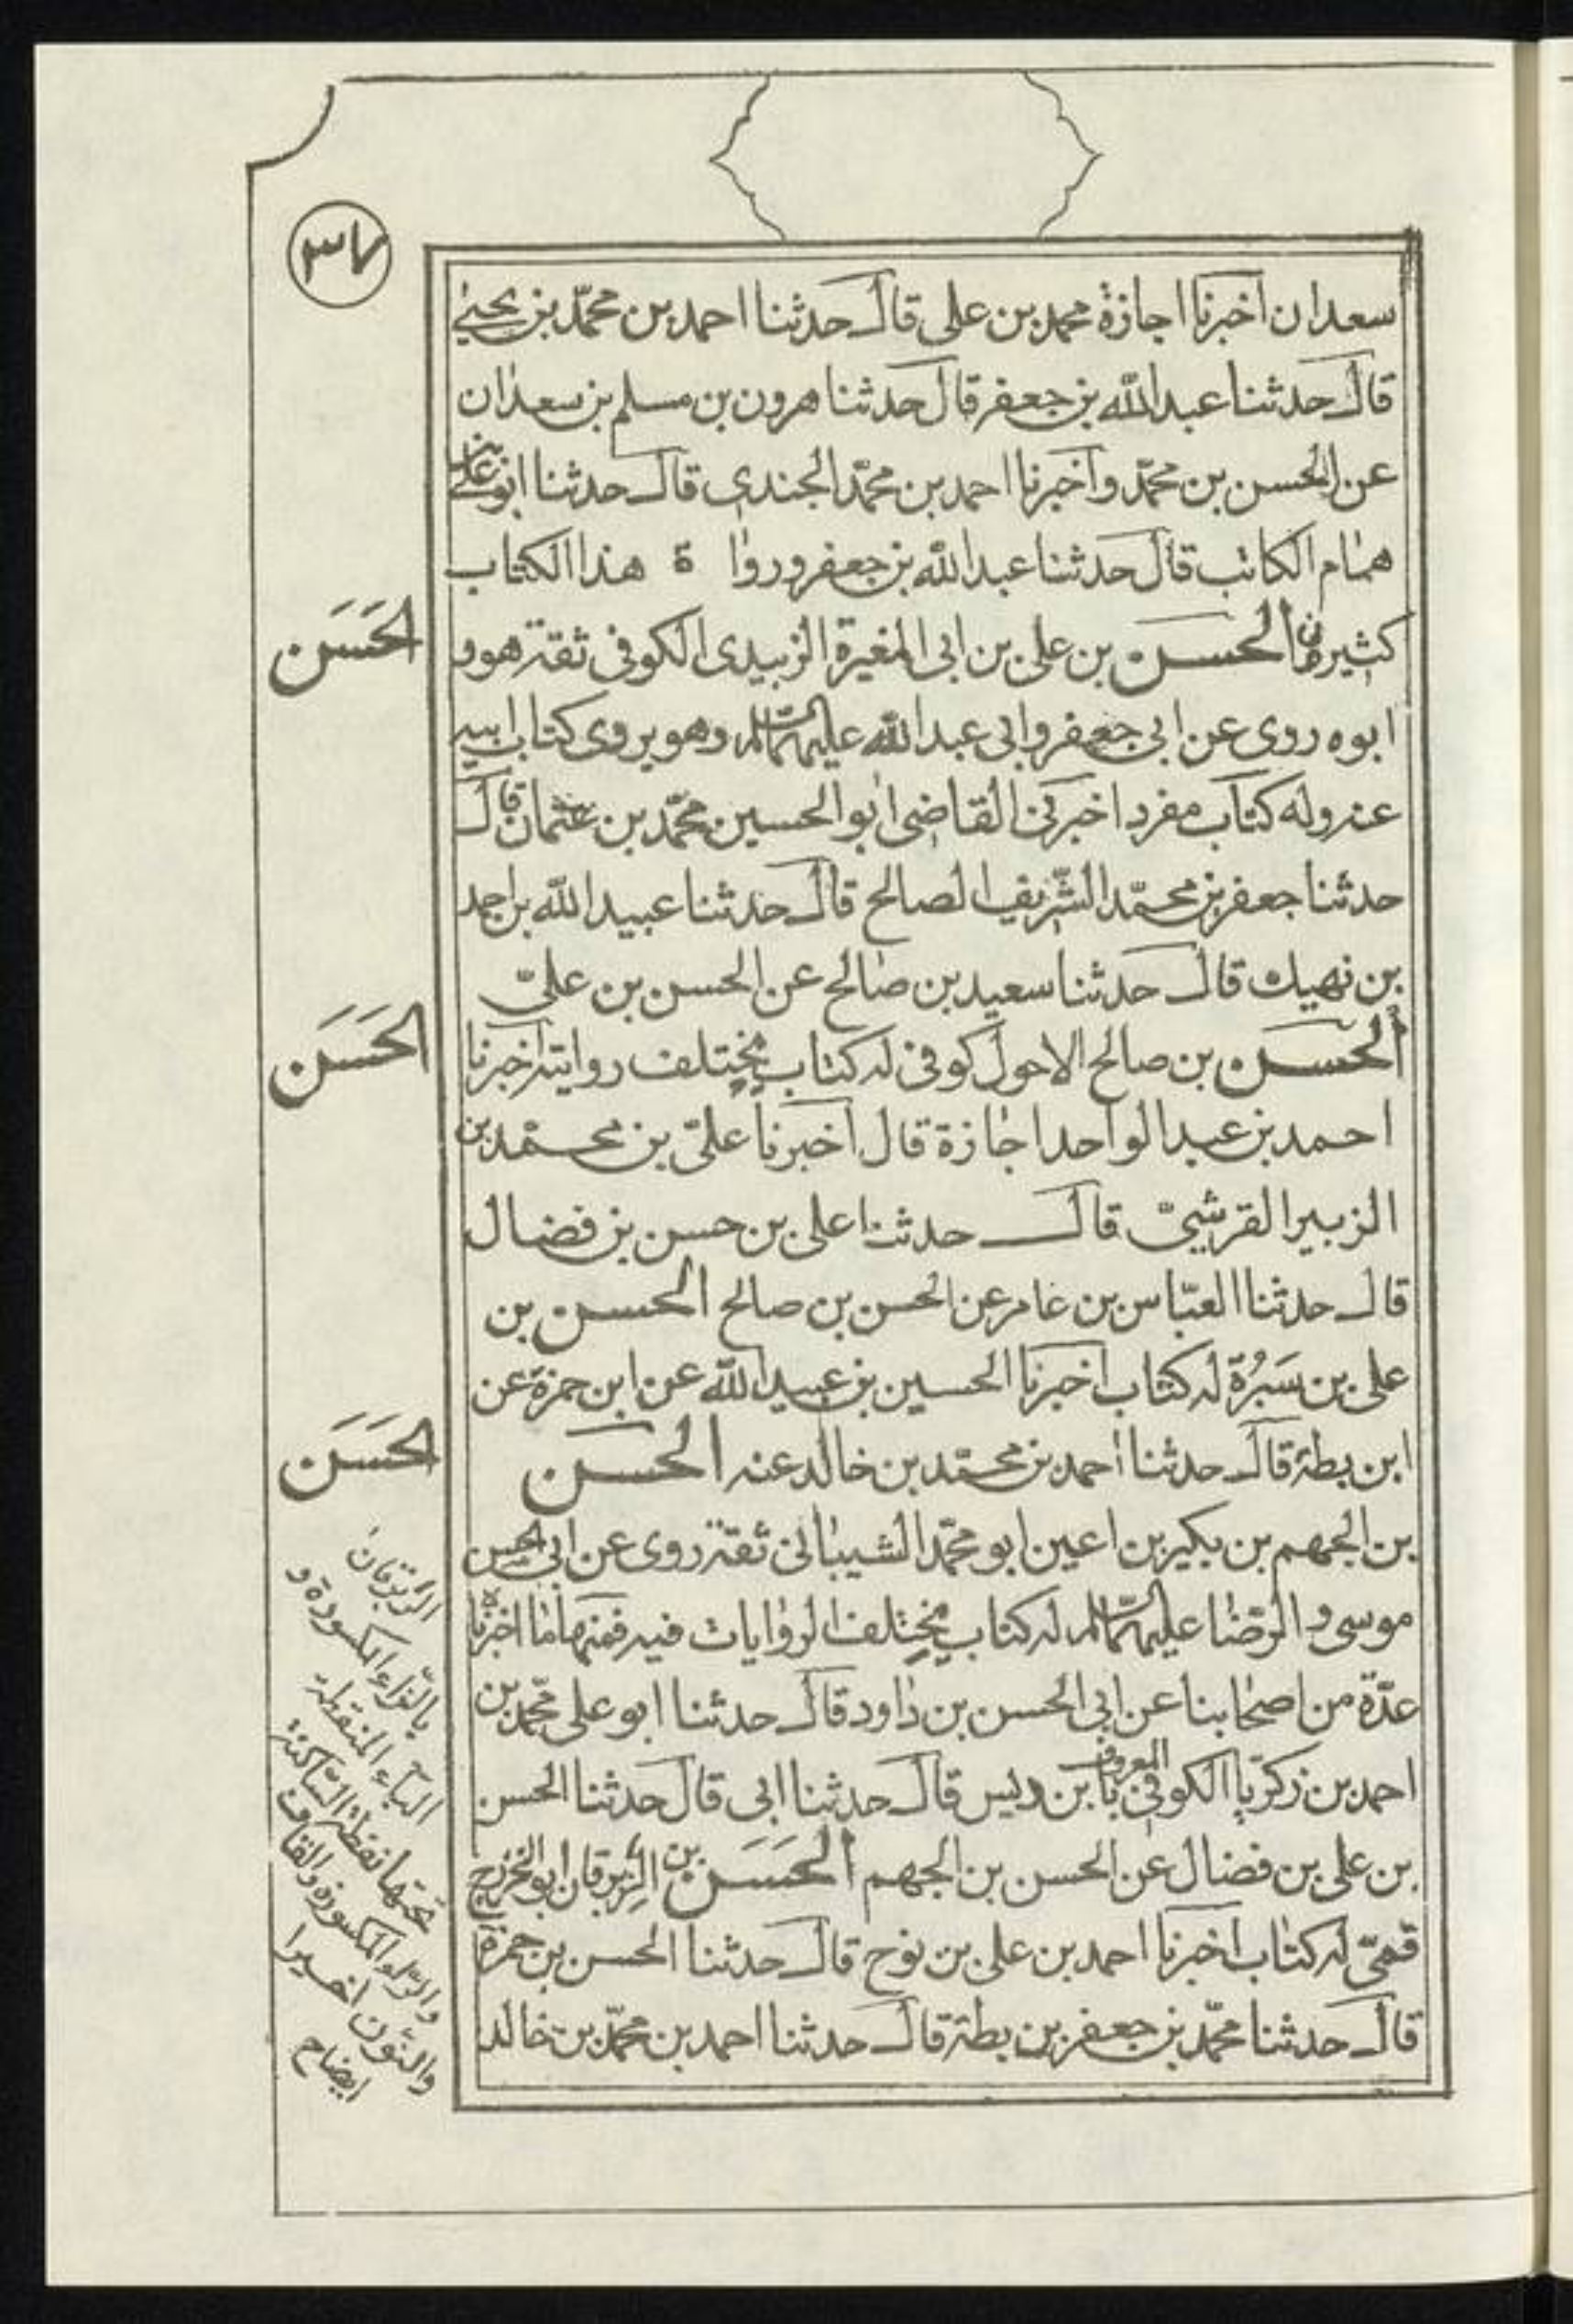 ٣٧
سعدان اخبرنا اجازة محمد بن على قال حدثنا احمد بن محمّد بن يحيى
قال حدثنا عبد الله بن جعفر قال حدثنا هرون بن مسلم بن سعدان
عن الحسن بن محمّد واخبرنا احمد بن محمّد الجندى قال حدثنا ابو على بن
همام الكاتب قال حدثنا عبد الله بن جعفر ورواة هذا الكتاب
كثيرة الحسن بن على بن ابى المغيرة الزبيدى الكوفى ثقة هو و
ابوه روى عن ابى جعفر وابى عبد الله عليهما السلام وهو يروى كتاب ابيه
عنه وله كتاب مفرد اخبرنى القاضى ابو الحسين محمّد بن عثمان قال
حدثنا جعفر بن محمّد الشّريف الصالح قال حدثنا عبيد الله بن احمد
بن نهيك قال حدثنا سعيد بن صالح عن الحسن بن علىّ
الحسن بن صالح الاحول كوفى له كتاب يختلف روايته اخبرنا
احمد بن عبد الواحد اجازة قال اخبرنا علىّ بن محمّد بن
الزبير القرشىّ قال حدثنا على بن حسن بن فضال
قال حدثنا العبّاس بن عامر عن الحسن بن صالح الحسن بن
على بن سَبُرة له كتاب اخبرنا الحسين بن عبيد الله عن ابن حمزة عن
ابن بطة قال حدثنا احمد بن محمّد بن خالد عنه الحسن
بن الجهم بن بكير بن اعين ابو محمّد الشيبانى ثقة روى عن ابى الحسن
موسى والرّضا عليهما السّلام له كتاب يختلف الروايات فيه فمنها ما اخبرناه
عدّة من اصحابنا عن ابى الحسن بن داود قال حدثنا ابو على محمّد بن
احمد بن زكريّا الكوفى المعروف بابن دبس قال حدثنا ابى قال حدثنا الحسن
بن على بن فضال عن الحسن بن الجهم الحَسَن بن الزبرقان ابو الخزرج
قمّى له كتاب اخبرنا احمد بن على بن نوح قال حدثنا الحسن بن حمزة
قال حدثنا محمّد بن جعفر بن بطة قال حدثنا احمد بن محمّد بن خالد
الحَسَن
الحَسَن
الحَسَن
الزّبرقان
بالزّاء المكسورة و
الباء المنقطة
تحتها نقطة السّاكنة
والرّاء المكسورة والقاف
والنّون اخيرا
ايضاح